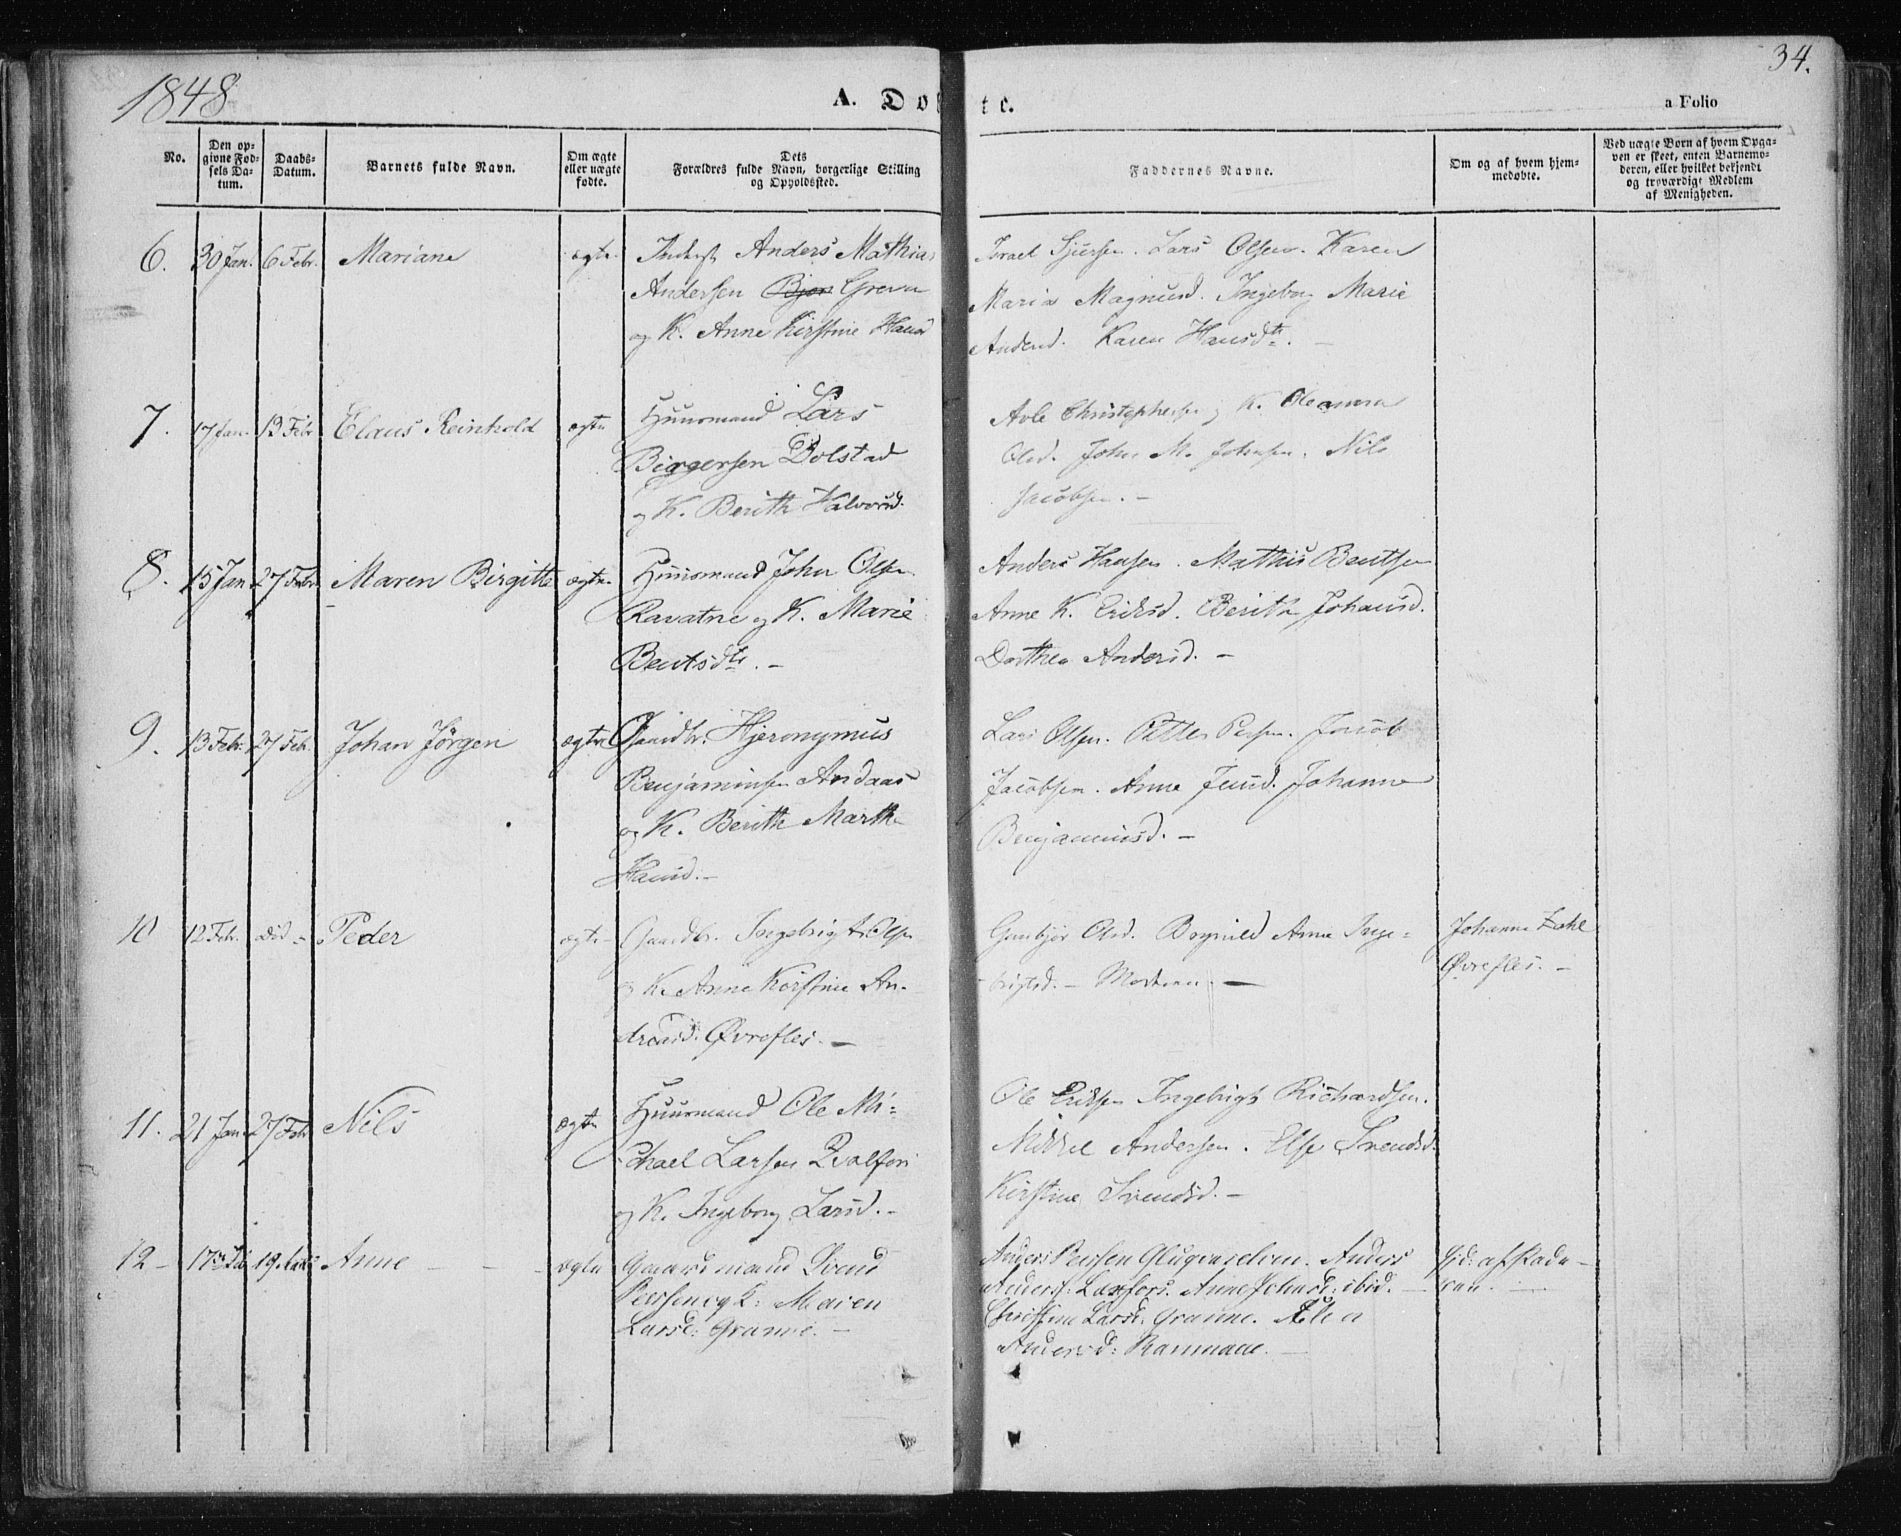 1848
A. Do te.
34.
a Folio
No.
Den op-
givne Fød-
sels Da-
tum.
Daabs-
Datum.
Barnets fulde Navn.
Om ægte
eller uægte
fødte.
Dets
Forældres fulde Navn, borgerlige Stilling
og Opholdssted.
Faddernes Navne.
Om og af hvem hjem-
medøbte.
Ved uægte Børn af hvem Opga-
ven er skeet, enten Barnemo-
deren, eller hvilket bekjendt
og troværdigt Medlem
af Menigheden.
6. 30 Jan. 6 Febr. Mariane ægte Inderst Anders Mathias
Andersen Grevn
og K. Anne Kirstine Hansd
Israel Sjursen. Lars Olsen. Karen
Maria Magnusd. Ingeborg Marie
Andersd. Karen Hansdtr. –
7. 17 Jan. 13 Febr Claus Reinhold ægte Huusmand Lars
Birgersen Dolstad
og K. Berith Halvorsd.
Avle Christophersen og K. Oleanna
Olsd. John M. Johnsen. Nils
Jacobsen. –
8. 15 Jan 27 Febr. Maren Birgitte ægte Huusmand John Olsen
Ravatne og K. Marie
Bentsdtr. –
Anders Hansen. Mathis Bentsen
Anne K. Eriksd. Berith Johansd.
Dorthea Andersd. –
9. 13 Febr. 27 Feb. Johan Jørgen ægte Gaardbr. Hjeronymus
Benjaminsen Andaas
og K. Berith Marth.
Hansd. –
Lars Olsen. Petter Persen. Jacob
Jacobsen. Anne Jensd. Johanne
Benjaminsd. –
10 12 Feb. did – Peder ægte – Gaardbr. Ingebrigt Olsen
og K. Anne Kirstine An-
dreasd. Øvrefles. –
Gunbjør Olsd. Bognild Anne Inge=
brigtsd. – Moderen. –
Johanne Zahl
Øvrefles. –
11. 21 Jan 27 Febr Nils ægte Huusmand Ole Mi=
chael Larsen Qvalfors
og K. Ingeborg Larsd. –
Ole Eriksen Ingebrigt Richardsen.
Mikkel Andersen. Else Svendsd.
Kirstine Svendsd. –
12 – 17de 19 Anne ægte Gaardmand Svend
Persen og K: Maren
Larsd: Granne. –
Anders Persen Glugvaselven. Anders
Anders: Laxfors. Anne Johnsd: ibid. –
Christine Larsd: Granne.
Andersd: